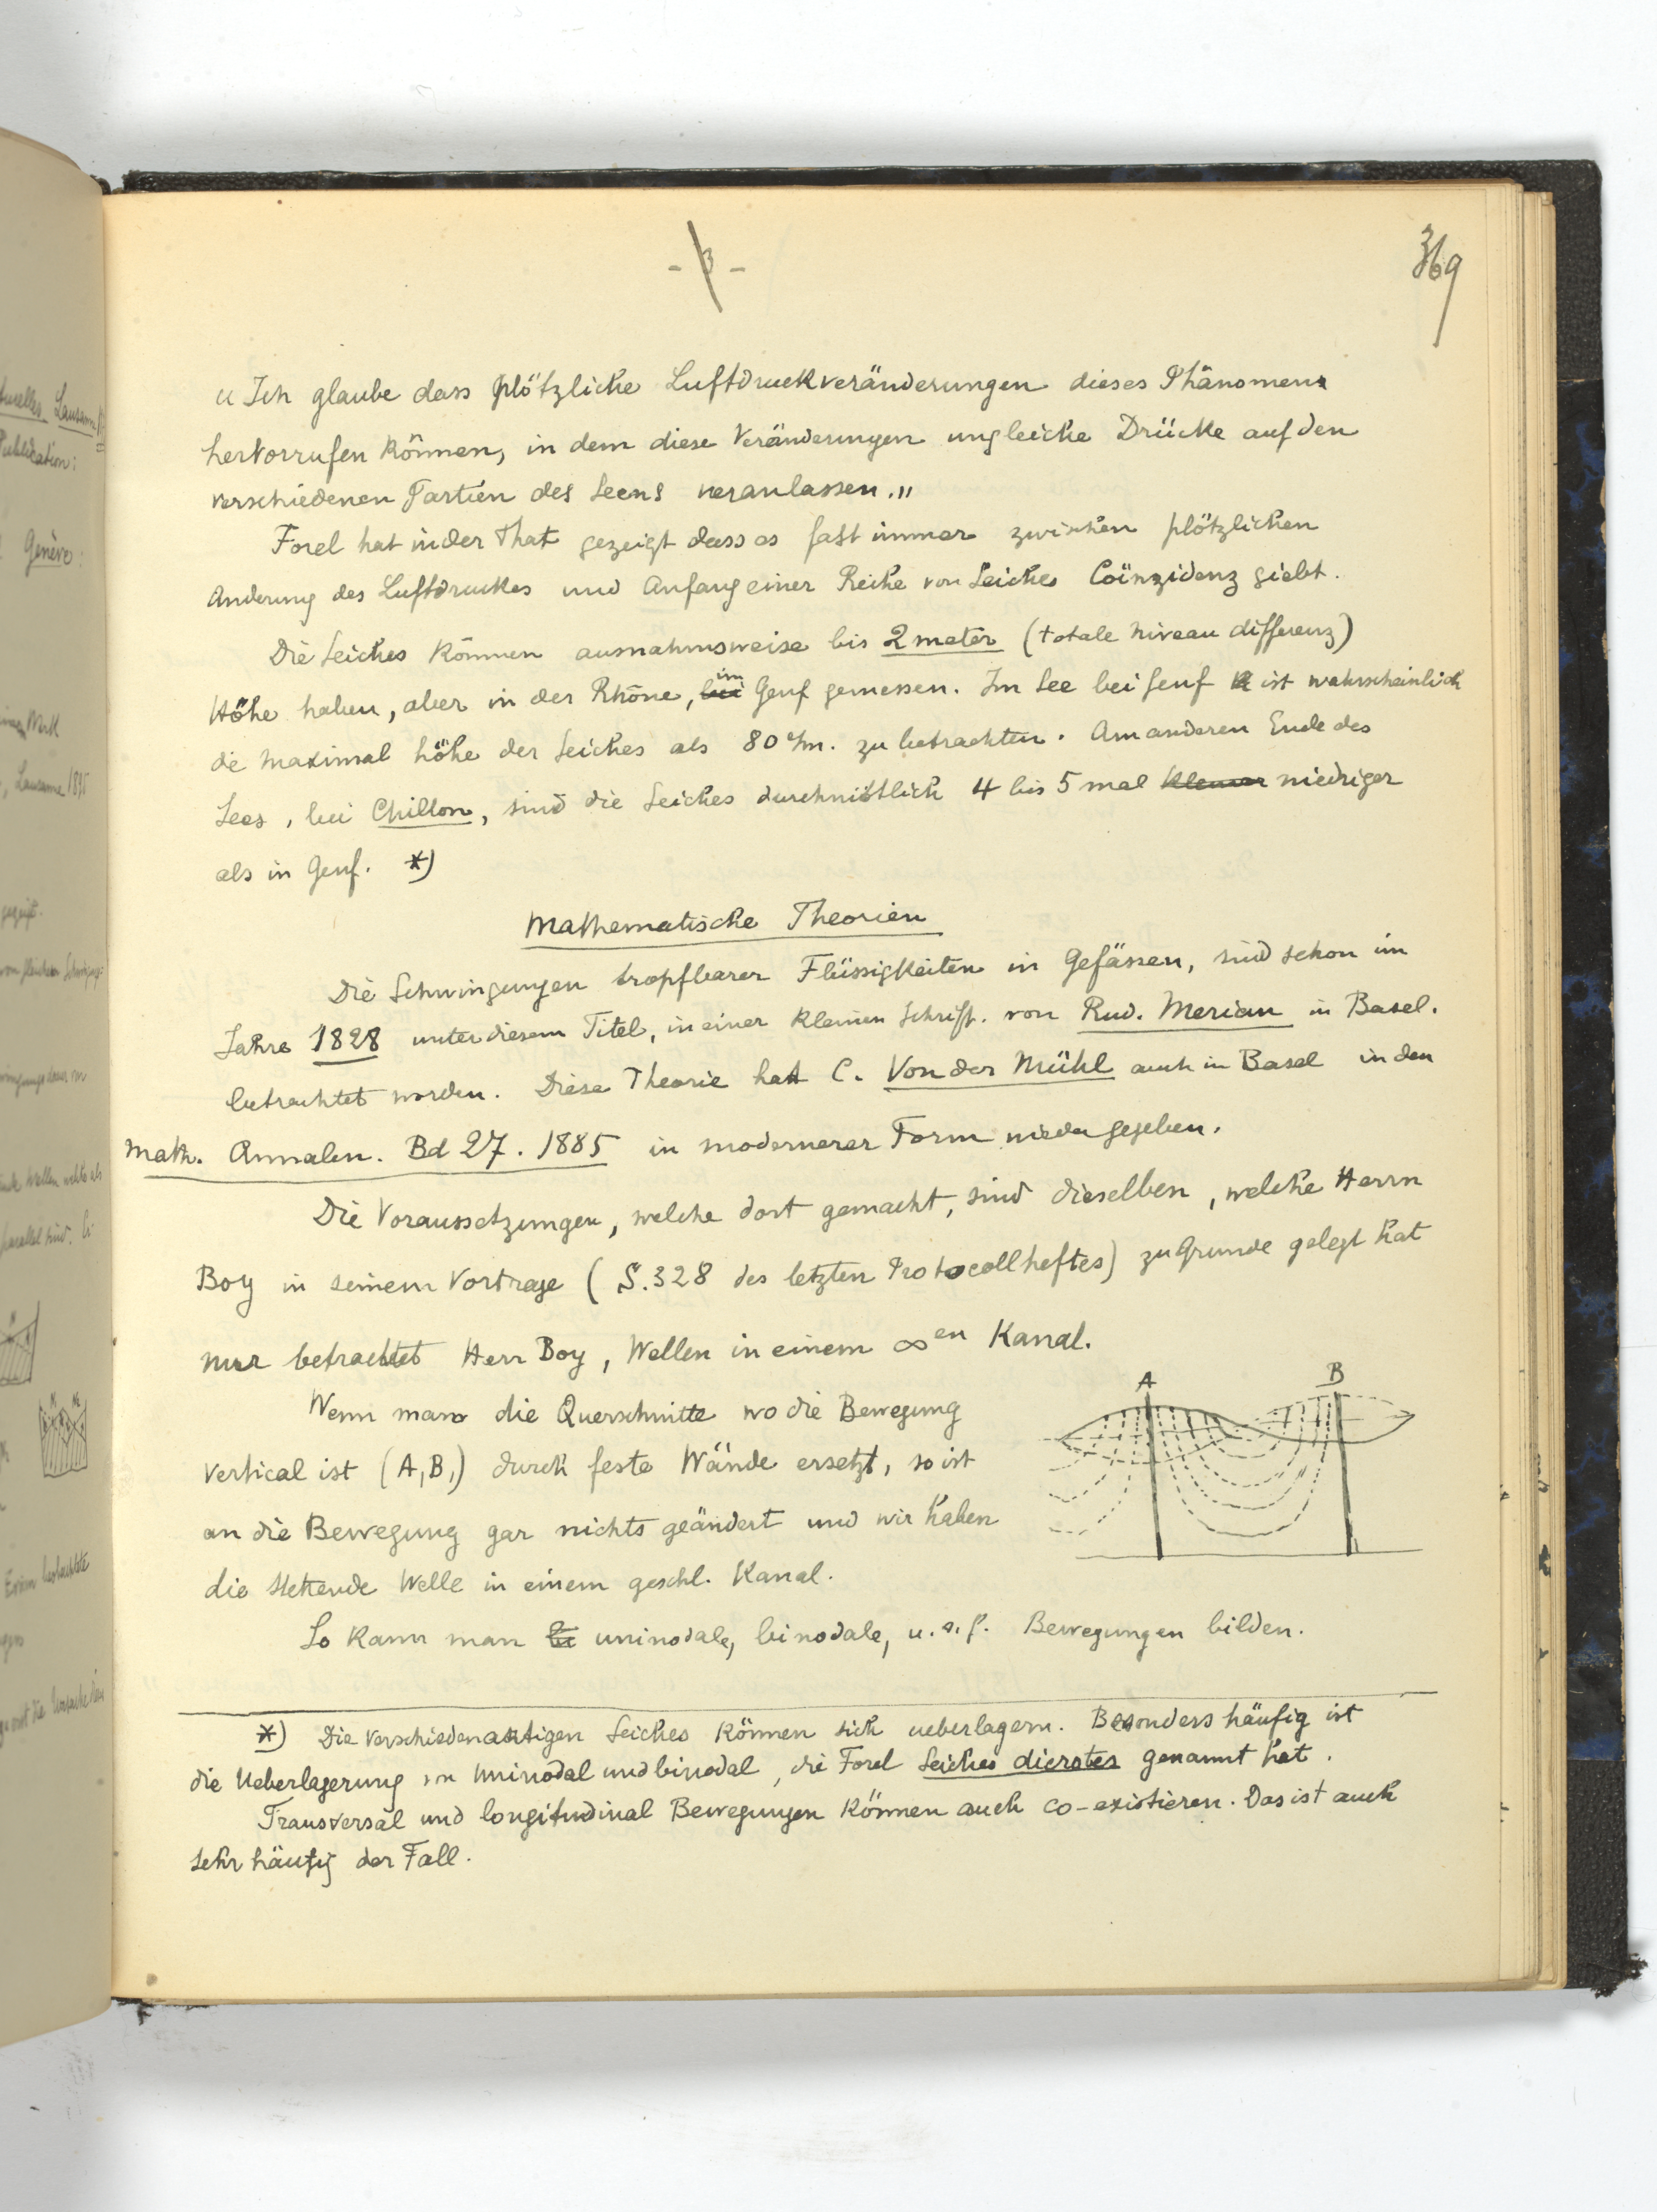 - 3 -
369
„ Ich glaube dass plötzliche Luftdruckveränderungen dieses Phänomen
hervorrufen können, in dem diese Veränderungen ungleiche Drücke auf den
verschiedenen Partien des Seens veranlassen. „
Forel hat in der That gezeigt dass es fast immer zwischen plötzlichen
Anderung des Luftdruckes und Anfang einer Reihe von Seiches Coïnzidenz giebt.
Die Seiches können ausnahmsweise bis 2 meter (totale niveau differenz)
Höhe haben, aber in der Rhône, im Genf gemessen. Im See bei Genf ist wahrscheinlich
die maximal höhe der Seiches als 80 c/m. zu betrachten. Am anderen Ende des
Sees, bei Chillon, sind die Seiches durchnittlich 4 bis 5 mal kleiner niedriger
als in Genf. *)
Mathematische Theorien
Die Schwingungen tropfbarer Flüssigkeiten in Gefässen, sind schon im
Jahre 1828 unter diesem Titel, in einer kleinen Schrift. von Rud. Merian in Basel.
betrachtet worden. Diese Theorie hat C. Von der Mühl auch in Basel in den
Math. Annalen. Bd 27. 1885 in modernerer Form wieder gegeben.
Die Voraussetzungen, welche dort gemacht, sind dieselben, welche Herrn
Boy in seinem Vortrage (S. 328 des letzten Protocollheftes) zu Grunde gelegt hat
nur betrachtet Herr Boy, Wellen in einem ∞en Kanal.
A B
Wenn man die Querschnitte wo die Bewegung
vertical ist (A, B,) durch feste Wände ersetzt, so ist
an die Bewegung gar nichts geändert und wir haben
die stehende Welle in einem geschl. Kanal.
So kann man bi uninodale, binodale, u. s. f. Bewegungen bilden.
*) Die verschiedenartigen Seiches können sich ueberlagern. Besonders häufig ist
die Ueberlagerung von uninodal und binodal, die Forel Seiches dicrotes genannt hat.
Transversal und longitudinal Bewegungen können auch co-existieren. Das ist auch
sehr häufig der Fall.